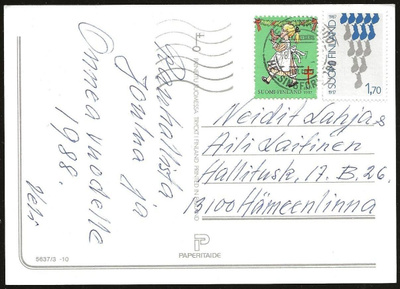 Rauhallista
Joulua ja
Onnea vuodelle
1988.
Veli
SUOMI FINLAND 1987
SUOMI FINLAND
1,70
HELSINGFORS
Neidit Lahja &
Aili Laitinen
Hallitusk. 17. B. 26.
13100 Hämeenlinna
PAPERITAIDE
5637/3 -10